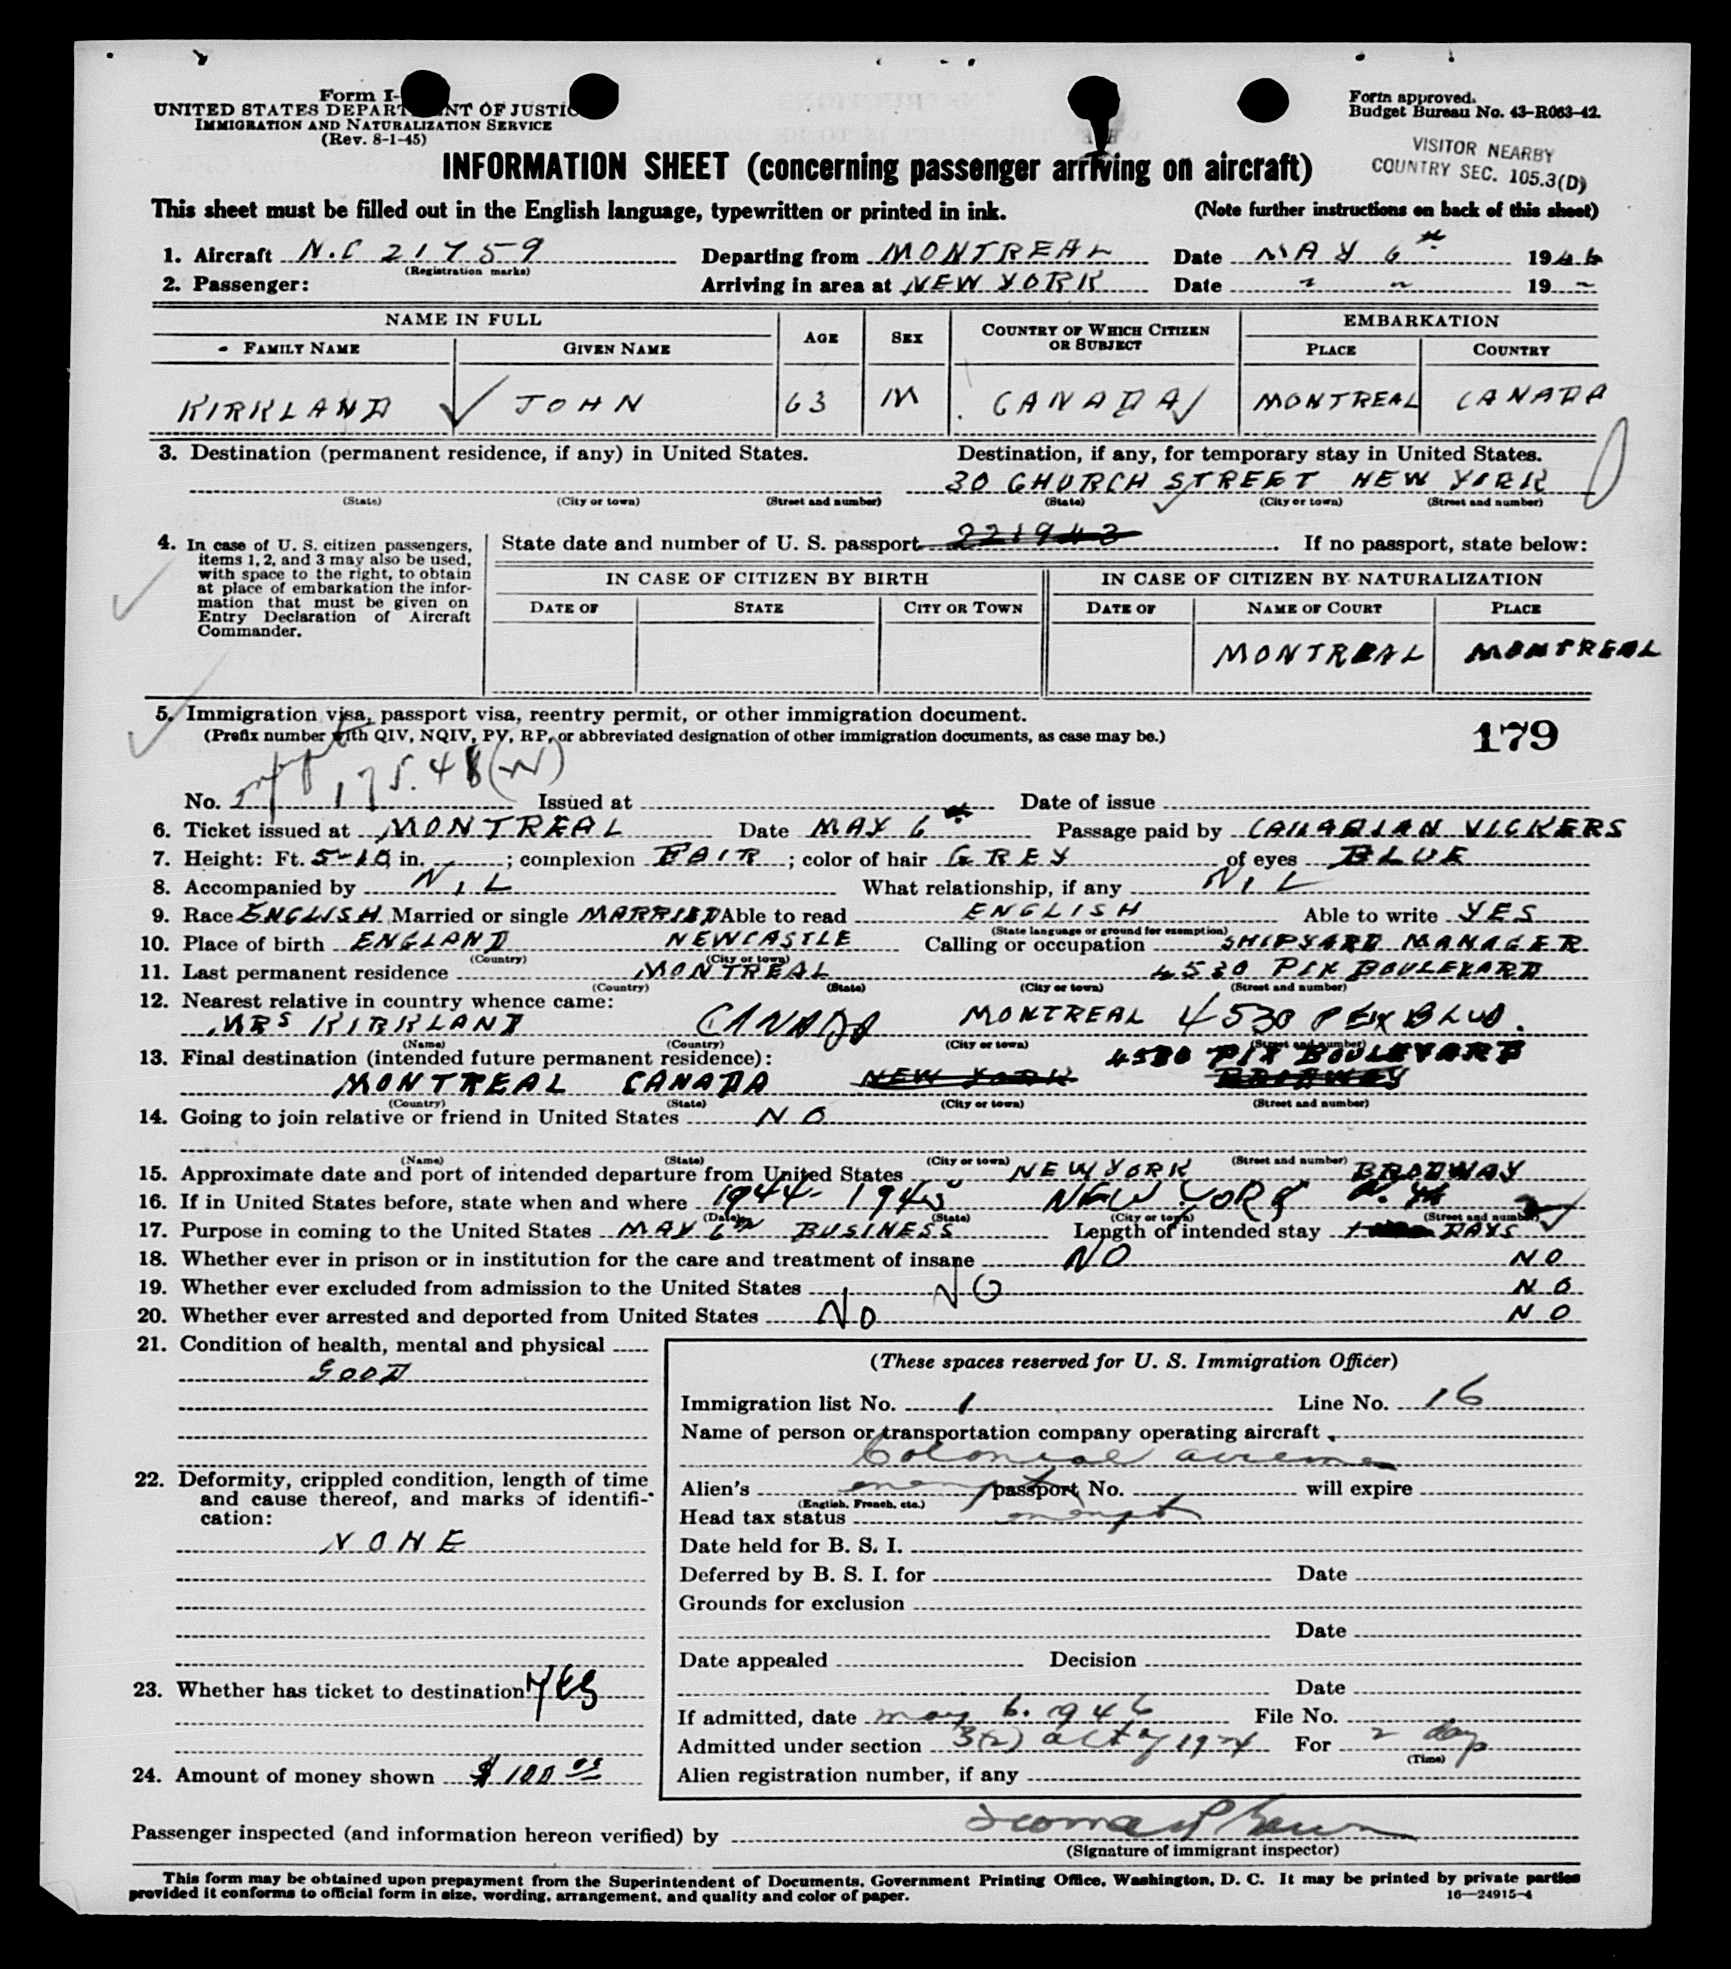 Form I-
UNITED STATES DEPARTMENT OF JUSTIC
IMMIGRATION AND NATURALIZATION SERVICE
(Rev. 8-1-45)
Form approved.
Budget Bureau No. 43-R063-42.
VISITOR NEARBY
COUNTRY SEC. 105.3(D)
INFORMATION SHEET (concerning passenger arriving on aircraft)
This sheet must be filled out in the English language, typewritten or printed in ink. (Note further instructions on back of this sheet)
1. Aircraft N.C 21759 Departing from MONTREAL Date MAY 6th 1946
(Registration marks)
2. Passenger: Arriving in area at NEW YORK Date " " 19 "
NAME IN FULL AGE SEX COUNTRY OF WHICH CITIZEN OR SUBJECT EMBARKATION
FAMILY NAME GIVEN NAME PLACE COUNTRY
KIRKLAND JOHN 63 M CANADA MONTREAL CANADA
3. Destination (permanent residence, if any) in United States. Destination, if any, for temporary stay in United States.
30 CHURCH STREET NEW YORK
(State) (City or town) (Street and number) (State) (City or town) (Street and number)
4. In case of U. S. citizen passengers, items 1, 2, and 3 may also be used, with space to the right, to obtain at place of embarkation the information that must be given on Entry Declaration of Aircraft Commander.
State date and number of U. S. passport 221943. If no passport, state below:
IN CASE OF CITIZEN BY BIRTH IN CASE OF CITIZEN BY NATURALIZATION
DATE OF STATE CITY OR TOWN DATE OF NAME OF COURT PLACE
MONTREAL MONTREAL
5. Immigration visa, passport visa, reentry permit, or other immigration document.
(Prefix number with QIV, NQIV, PV, RP, or abbreviated designation of other immigration documents, as case may be.)
179
No. 175.48 Issued at Date of issue
6. Ticket issued at MONTREAL Date MAY 6th Passage paid by CANADIAN VICKERS
7. Height: Ft. 5-10 in. ; complexion FAIR ; color of hair GREY of eyes BLUE
8. Accompanied by NIL What relationship, if any NIL
9. Race ENGLISH Married or single MARRIED Able to read ENGLISH Able to write YES
(State language or ground for exemption)
10. Place of birth ENGLAND NEWCASTLE Calling or occupation SHIPYARD MANAGER
(Country) (City or town)
11. Last permanent residence MONTREAL 4530 PIX BOULEVARD
(Country) (State) (City or town) (Street and number)
12. Nearest relative in country whence came:
MRS KIRKLAND CANADA MONTREAL 4530 PEIX BLVD.
(Name) (Country) (City or town) (Street and number)
13. Final destination (intended future permanent residence): 4530 PIX BOULEVARD
MONTREAL CANADA NEW YORK BRODWAY
(Country) (State) (City or town) (Street and number)
14. Going to join relative or friend in United States NO
(Name) (State) (City or town) (Street and number)
15. Approximate date and port of intended departure from United States NEW YORK BRODWAY
16. If in United States before, state when and where 1944-1945 NEW YORK
(Date) (State) (City or town) (Street and number)
17. Purpose in coming to the United States MAY 6TH BUSINESS Length of intended stay DAYS
18. Whether ever in prison or in institution for the care and treatment of insane NO NO
19. Whether ever excluded from admission to the United States NO NO
20. Whether ever arrested and deported from United States NO NO
21. Condition of health, mental and physical
GOOD
22. Deformity, crippled condition, length of time and cause thereof, and marks of identification:
NONE
23. Whether has ticket to destination YES
24. Amount of money shown $100.00
(These spaces reserved for U. S. Immigration Officer)
Immigration list No. 1 Line No. 16
Name of person or transportation company operating aircraft
Colonial Airlines
Alien's exempt passport No. will expire
(English, French, etc.)
Head tax status exempt
Date held for B. S. I.
Deferred by B. S. I. for Date
Grounds for exclusion
Date
Date appealed Decision
Date
If admitted, date May 6. 1946 File No.
Admitted under section 3(2) act of 1924 For 2 days
(Time)
Alien registration number, if any
Passenger inspected (and information hereon verified) by
(Signature of immigrant inspector)
This form may be obtained upon prepayment from the Superintendent of Documents, Government Printing Office, Washington, D. C. It may be printed by private parties
provided it conforms to official form in size, wording, arrangement, and quality and color of paper. 16—24915-4